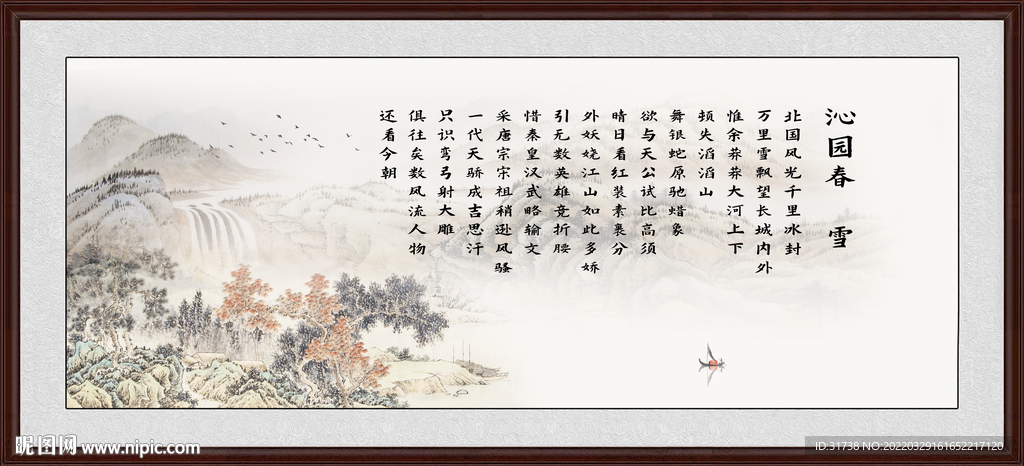 沁园春 雪
北国风光千里冰封
万里雪飘望长城内外
惟余莽莽大河上下
顿失滔滔山
舞银蛇原驰蜡象
欲与天公试比高须
晴日看红装素裹分
外妖娆江山如此多娇
引无数英雄竞折腰
惜秦皇汉武略输文
采唐宗宋祖稍逊风骚
一代天骄成吉思汗
只识弯弓射大雕
俱往矣数风流人物
还看今朝
昵图网 www.nipic.com
ID:31738 NO:20220329161652217120